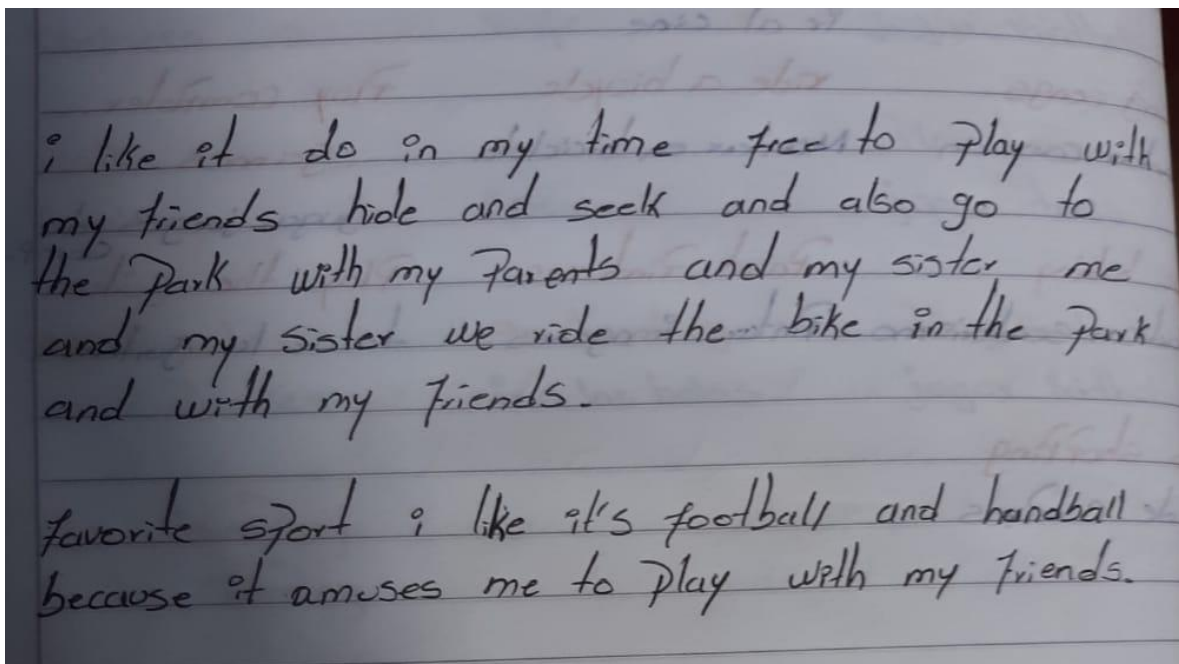 i like it do in my time free to play with
my friends hide and seek and also go to
the park with my parents and my sister me
and my sister we ride the bike in the park
and with my friends.
favorite sport i like it's football and handball
because it amuses me to play with my friends.